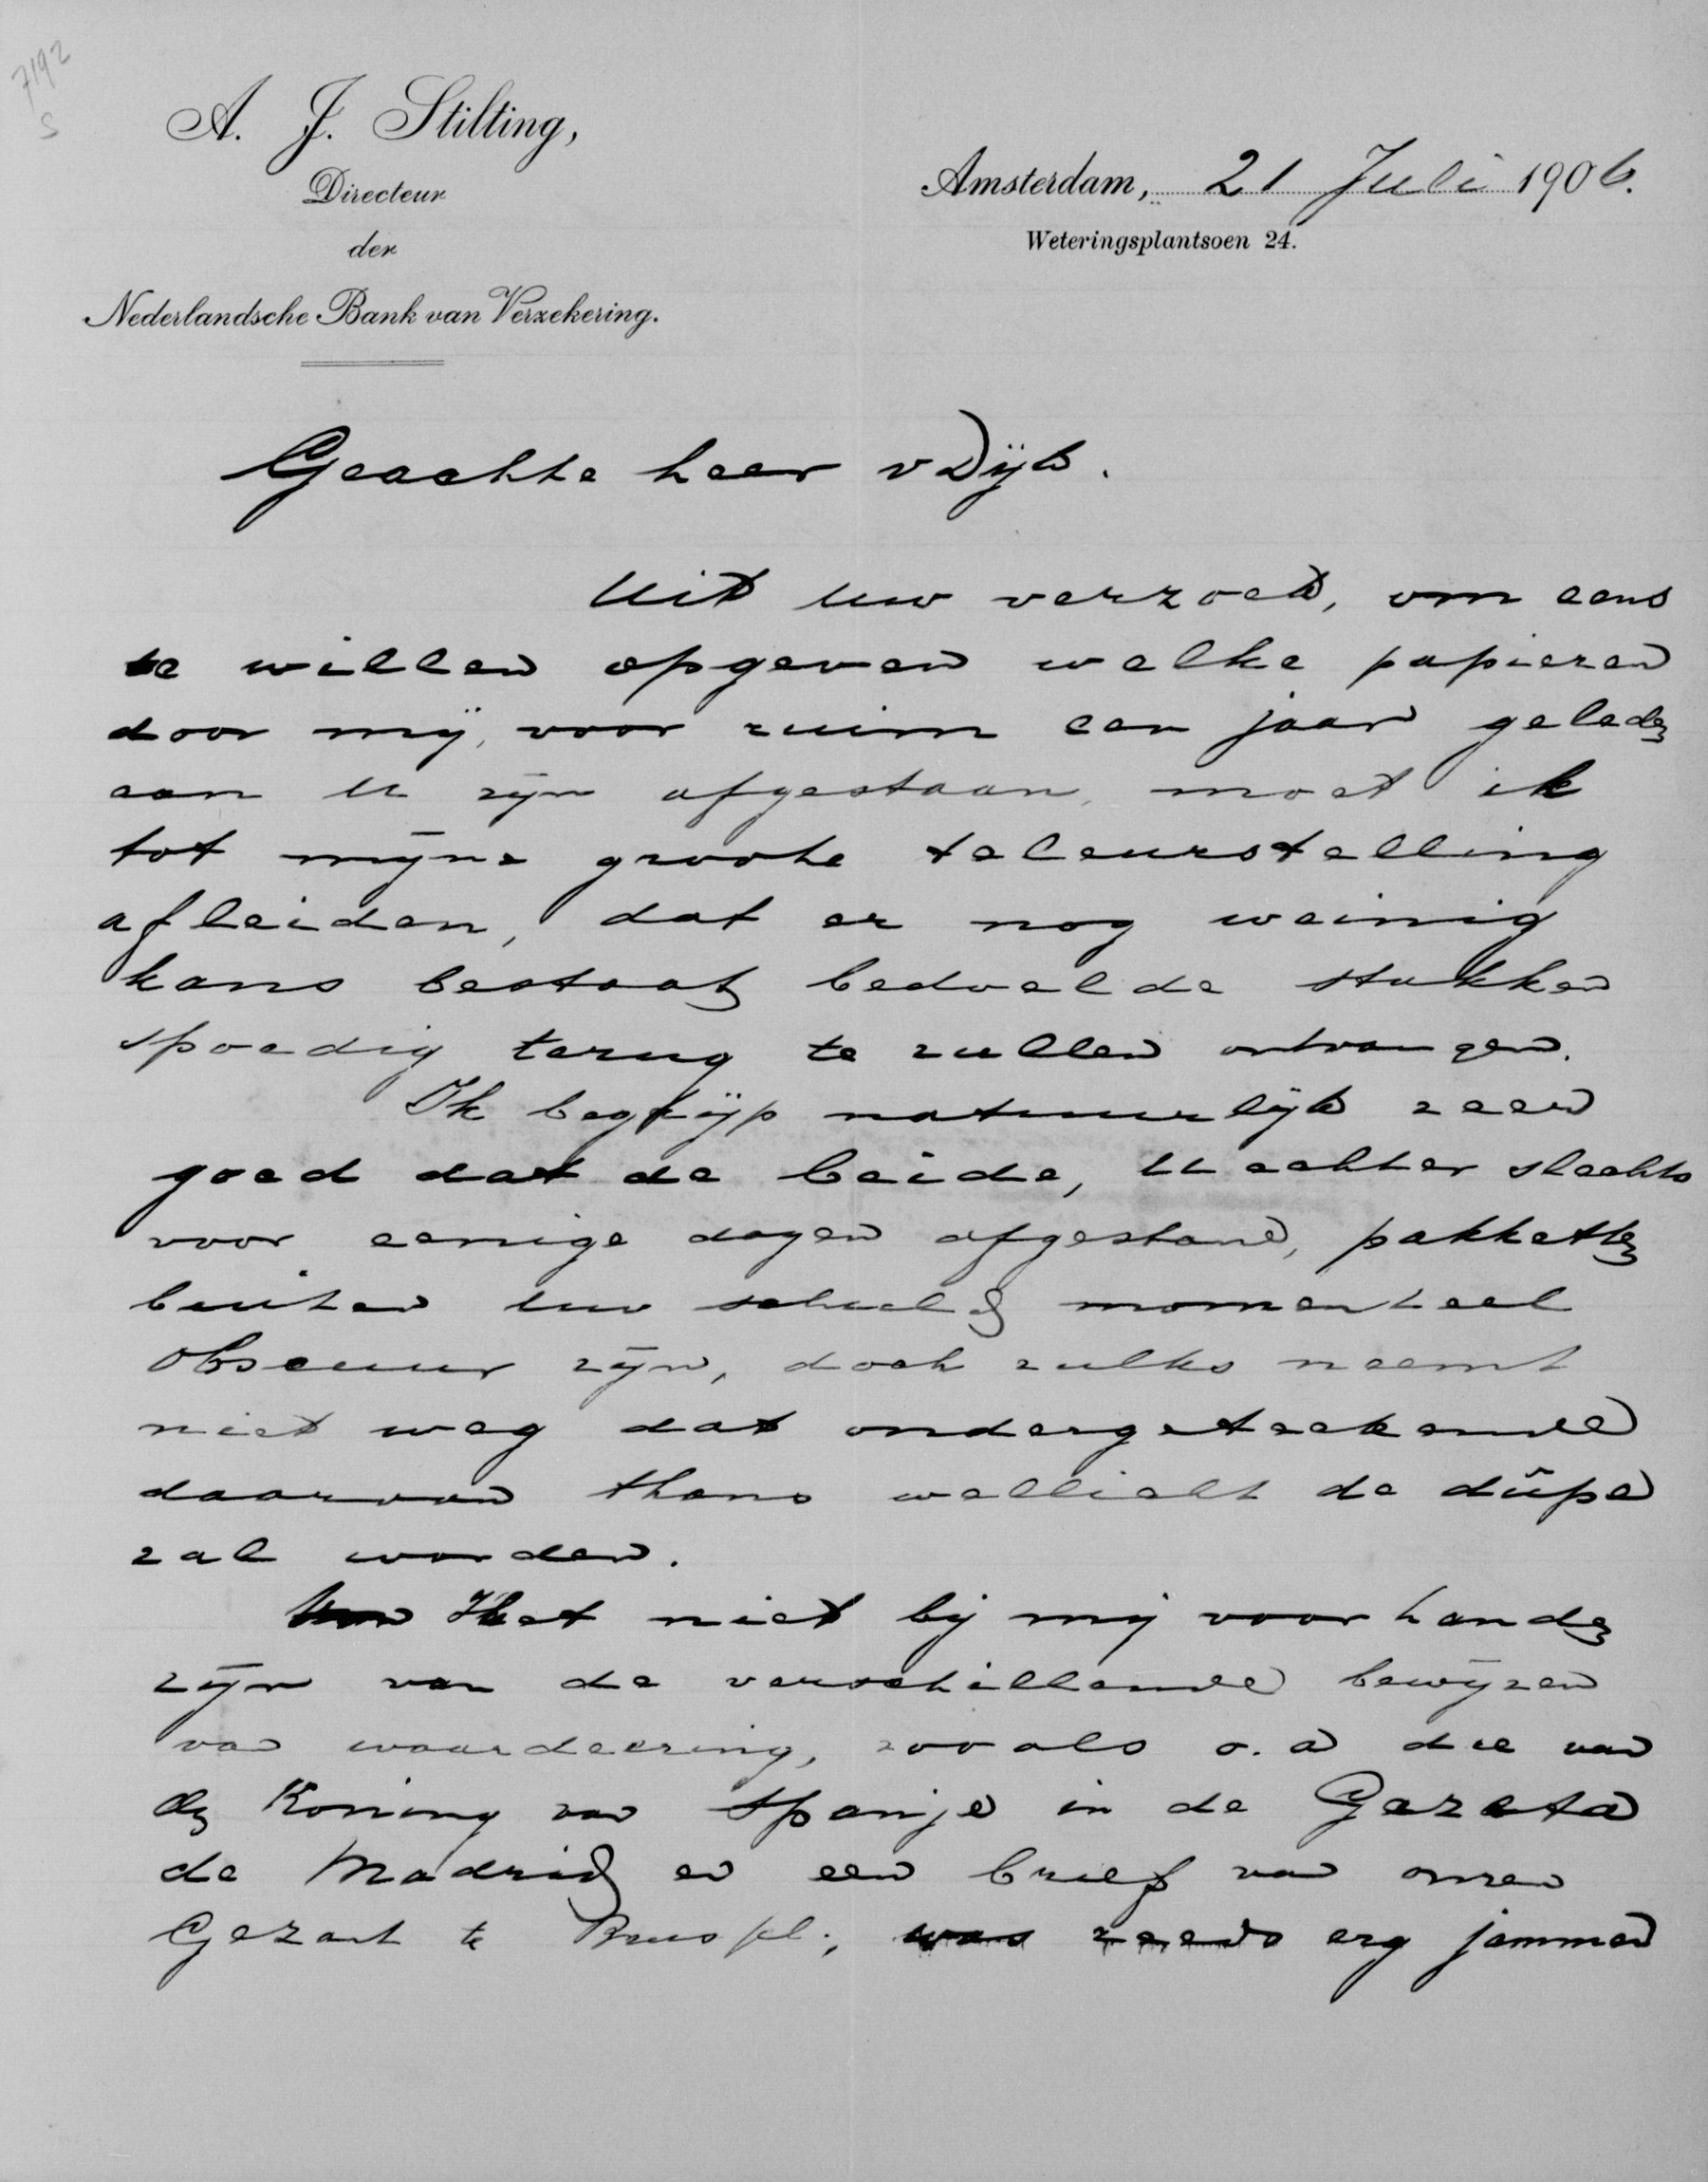 7192
S
A. J. Stilting,
Directeur
der
Nederlandsche Bank van Verzekering.
Amsterdam, 21 Juli 1906.
Weteringsplantsoen 24.
Geachte heer v Dijk.
Uit uw verzoek, om eens
te willen opgeven welke papieren
door mij, voor ruim een jaar geleden
aan U zijn afgestaan, moet ik
tot mijne groote teleurstelling
afleiden, dat er nog weinig
kans bestaat bedoelde stukken
spoedig terug te zullen ontvangen.
Ik begrijp natuurlijk zeer
goed dat de beide, U echter slechts
voor eenige dagen afgestane, pakketten
buiten uw schuld momenteel
obscuur zijn, doch zulks neemt
niet weg dat ondergeteekende
daarvan thans wellicht de dûpe
zal worden.
Het niet bij mij voorhanden
zijn van de verschillende bewijzen
van waardeering, zooals o.a die van
den Koning van Spanje in de Gazeta
de Madrid en een brief van onzen
Gezant te Brussel, was reeds erg jammer